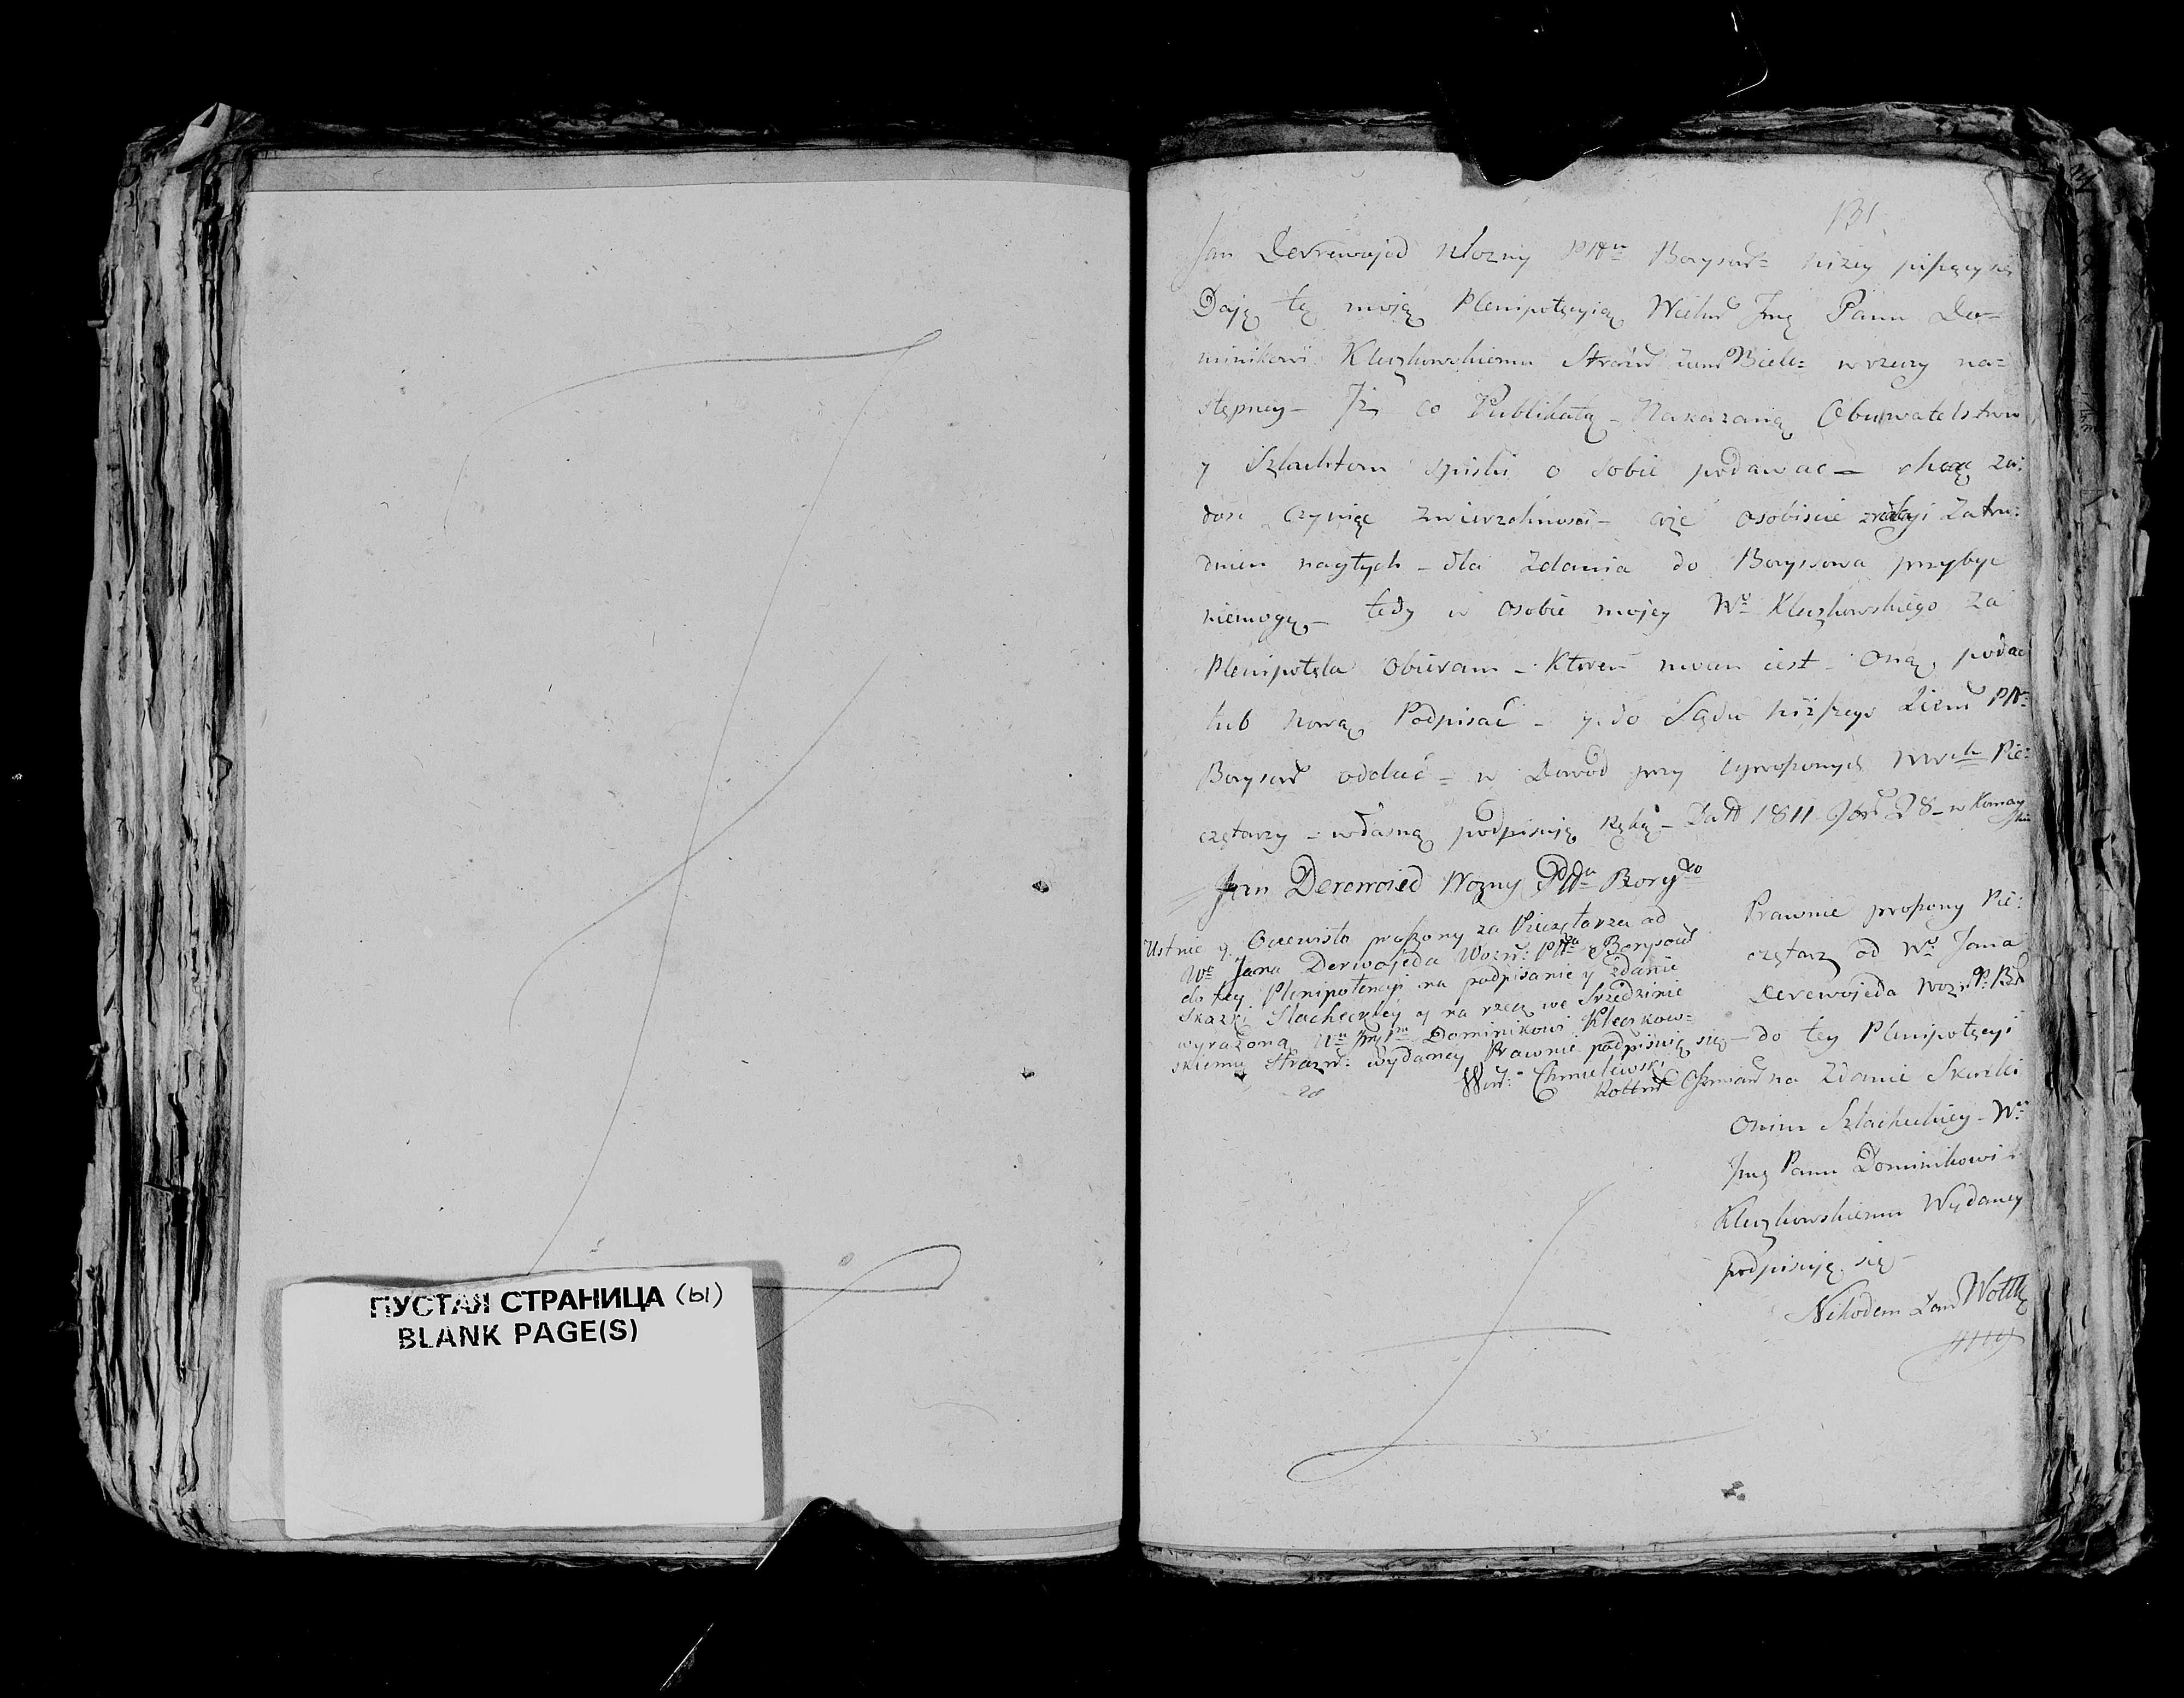 ПУСТАЯ СТРАНИЦА (ы)
BLANK PAGE(S)
131
Jan Derrewojed Wozny Pttu Borysow= niżey piszący się
Daję tę moią Plenipotęcyią Wielm Jmę Panu Do=
minikowi Kluzkowskiemu ziem w rzeczy na=
stępney – Iż co Publikatą – Nakazaną Obywatelstwu
y Szlachtom spiski o sobie podawac – chcąc za:
dosc czyniąc zwierzchnosci – osobiscie Zatru:
dnien nagłych – dla Zdania do Borysowa przybyc
niemogę – tedy w osobie mojey Wo Kluzkowskiego za
Plenipotęta Obieram – Ktoren mocen iest – Oną podac
lub Nową Podpisać – y do Sądu niższego Ziem Ptt=
Borysow oddać – w Dowod przy uproszonych Pie:
czętarzy – własną podpisuię ręką – Datt 1811 28 – w
Jan Derewoied Wozny Pttu Borygo
Ustnie y Oczewisto proszony za Pieczętarza od
We Jana Derwojeda Wozn: Pttu Borysow
do tey Plenipotencyi na podpisanie y zdanie
Skazki Slacheckiey y na rzecz we Srzedzinie
wyrażoną Wu Dominikowi Kleczkow=
skiemu Strazn: wydaney Prawnie podpisuię się
Chmielewski
Rottm Oszmian
Prawnie proszony Pie:
czętarz od Wo Jana
Derewojeda Wozn
– do tey Plenipotęcyi
na Zdanie Skaski
Szlacheckiey – Wu
Jmę Panu Dominikowi
Kluzkowskiemu Wydaney
podpisuję się –
Nikodem Wottk